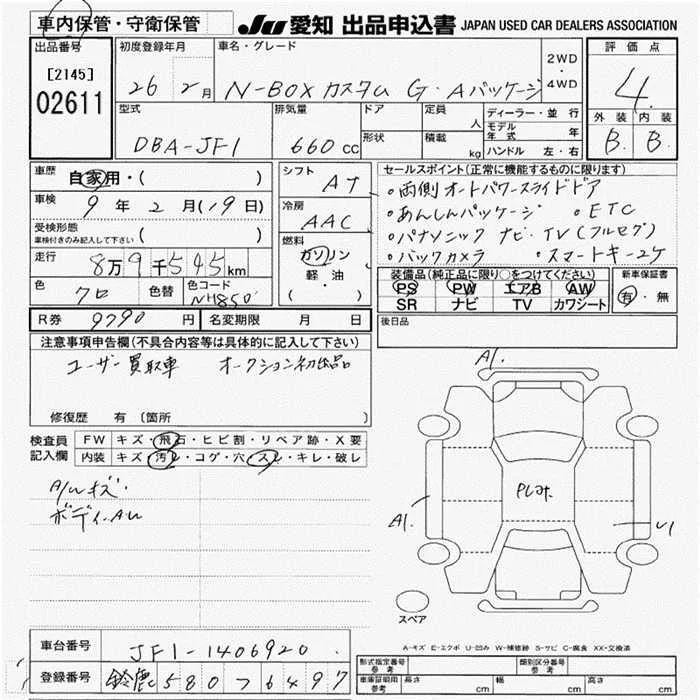 車内保管・守衛保管
JU 愛知 出品申込書 JAPAN USED CAR DEALERS ASSOCIATION
出品番号
[2145]
02611
初度登録年月
26 2月
車名・グレード
N-BOX カスタム G・Aパッケージ
2WD
・
4WD
評価点
4
外装 内装
B B
型式
DBA-JF1
排気量
660 cc
ドア
形状
定員
人
積載
kg
ディーラー・並行
モデル年式 年
ハンドル 左・右
車歴
自家用・( )
車検
9年2月(19日)
受検形態
車検付きのみ記入して下さい ( )
走行
8万9千545km
色
クロ
色替
色コード
NH850
シフト
AT
冷房
AAC
燃料
ガソリン
軽油
( ・ )
セールスポイント(正常に機能するものに限ります)
・両側オートパワースライドドア
・あんしんパッケージ ・ETC
・パナソニック ナビ・TV(フルセグ)
・バックカメラ ・スマートキー2ケ
装備品(純正品に限り○をつけてください)
PS PW エアB AW
SR ナビ TV カワシート
新車保証書
有・無
R券 9790円
名変期限 月 日
後日品
注意事項申告欄(不具合内容等は具体的に記入して下さい)
ユーザー買取車 オークション初出品
修復歴 有 〔箇所
検査員
記入欄
FW キズ・飛石・ヒビ割・リペア跡・X要
内装 キズ・汚レ・コゲ・穴・スレ・キレ・破レ
A/Wキズ.
ボディ.AU
A1.
A1.
U1
スペア
A-キズ E-エクボ U-凹み W-補修跡 S-サビ C-腐食 XX-交換済
車台番号
JF1-1406920
登録番号
鈴鹿 580 7 6497
型式指定番号
参考
類別区分番号
参考
車庫証明用
参考
長さ cm
幅 cm
高さ cm